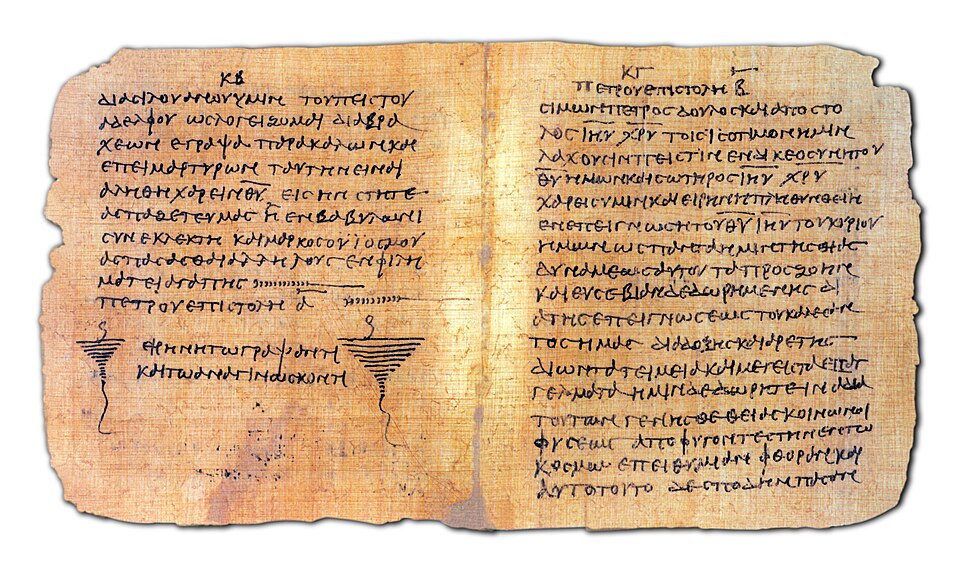 ΚΒ
ΔΙΑ ΣΙΛΟΥΑΝΟΥ ΥΜΙΝ ΤΟΥ ΠΕΙΣΤΟΥ
ΑΔΕΛΦΟΥ ΩΣ ΛΟΓΕΙΖΟΜΑΙ ΔΙΑ ΒΡΑ
ΧΕΩΝ ΕΓΡΑΨΑ ΠΑΡΑΚΑΛΩΝ ΚΑΙ
ΕΠΕΙΜΑΡΤΥΡΩΝ ΤΑΥΤΗΝ ΕΙΝΑΙ
ΑΛΗΘΗ ΧΑΡΕΙΝ ΘΥ ΕΙΣ ΗΝ ΣΤΗΤΕ
ΑΣΠΑΖΕΤΕ ΥΜΑΣ Η ΕΝ ΒΑΒΥΛΩΝΙ
ΣΥΝΕΚΛΕΚΤΗ ΚΑΙ ΜΑΡΚΟΣ Ο ΥΙΟΣ ΜΟΥ
ΑΣΠΑΣΑΣΘΑΙ ΑΛΛΗΛΟΥΣ ΕΝ ΦΙΛΗ
ΜΑΤΕΙ ΑΓΑΠΗΣ
ΠΕΤΡΟΥ ΕΠΙΣΤΟΛΗ Α
ΕΙΡΗΝΗ ΤΩ ΓΡΑΨΑΝΤΙ
ΚΑΙ ΤΩ ΑΝΑΓΙΝΩΣΚΟΝΤΙ
ΚΓ
ΠΕΤΡΟΥ ΕΠΙΣΤΟΛΗ Β
ΣΙΜΩΝ ΠΕΤΡΟΣ ΔΟΥΛΟΣ ΚΑΙ ΑΠΟΣΤΟ
ΛΟΣ ΙΗΥ ΧΡΥ ΤΟΙΣ ΙΣΟΤΙΜΟΝ ΗΜΙΝ
ΛΑΧΟΥΣΙΝ ΠΕΙΣΤΙΝ ΕΝ ΔΙΚΕΟΣΥΝΗ ΤΟΥ
ΘΥ ΗΜΩΝ ΚΑΙ ΣΩΤΗΡΟΣ ΙΗΥ ΧΡΥ
ΧΑΡΕΙΣ ΥΜΙΝ ΚΑΙ ΕΙΡΗΝΗ ΠΛΗΘΥΝΘΕΙΗ
ΕΝ ΕΠΕΙΓΝΩΣΗ ΤΟΥ ΘΥ ΙΗΥ ΤΟΥ ΚΥΡΙΟΥ
ΗΜΩΝ ΩΣ ΠΑΝΤΑ ΗΜΙΝ ΤΗΣ ΘΙΑΣ
ΔΥΝΑΜΕΩΣ ΑΥΤΟΥ ΤΑ ΠΡΟΣ ΖΩΗΝ
ΚΑΙ ΕΥΣΕΒΙΑΝ ΔΕΔΩΡΗΜΕΝΗΣ ΔΙ
Α ΤΗΣ ΕΠΕΙΓΝΩΣΕΩΣ ΤΟΥ ΚΑΛΕΣΑΝ
ΤΟΣ ΗΜΑΣ ΔΙΑ ΔΟΞΗΣ ΚΑΙ ΑΡΕΤΗΣ
ΔΙ ΩΝ ΤΑ ΤΕΙΜΕΙΑ ΚΑΙ ΜΕΓΕΙΣΤΑ ΕΠΑΓ
ΓΕΛΜΑΤΑ ΗΜΙΝ ΔΕΔΩΡΗΤΕ ΙΝΑ ΔΙΑ
ΤΟΥΤΩΝ ΓΕΝΗΣΘΕ ΘΕΙΑΣ ΚΟΙΝΩΝΟΙ
ΦΥΣΕΩΣ ΑΠΟΦΥΓΟΝΤΕΣ ΤΗΝ ΕΝ ΤΩ
ΚΟΣΜΩ ΕΠΕΙΘΥΜΙΑΝ ΦΘΟΡΑΝ ΚΑΙ
ΑΥΤΟ ΤΟΥΤΟ ΔΕ ΣΠΟΔΗΝ ΠΑΣΑΝ